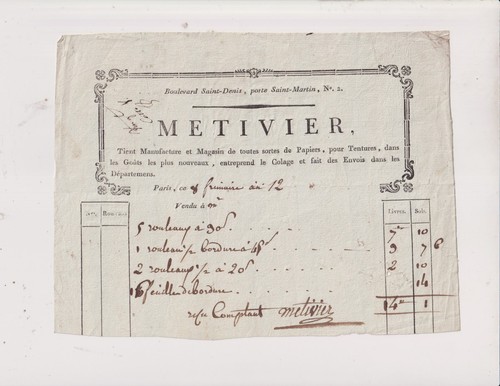 Boulevard Saint-Denis, porte Saint-Martin, No. 2.
METIVIER,
Tient Manufacture et Magasin de toutes sortes de Papiers, pour Tentures, dans
les Goûts les plus nouveaux, entreprend le Colage et fait des Envois dans les
Départemens.
Paris, ce 8 frimaire an 12
Vendu à
Livres. Sols.
5 rouleaux à 30s 7 10
1 rouleau bordure à 3 7 6
2 rouleaux à 20s 2 10
16 feuilles de bordure 14
14 1
reçu Comptant metivier